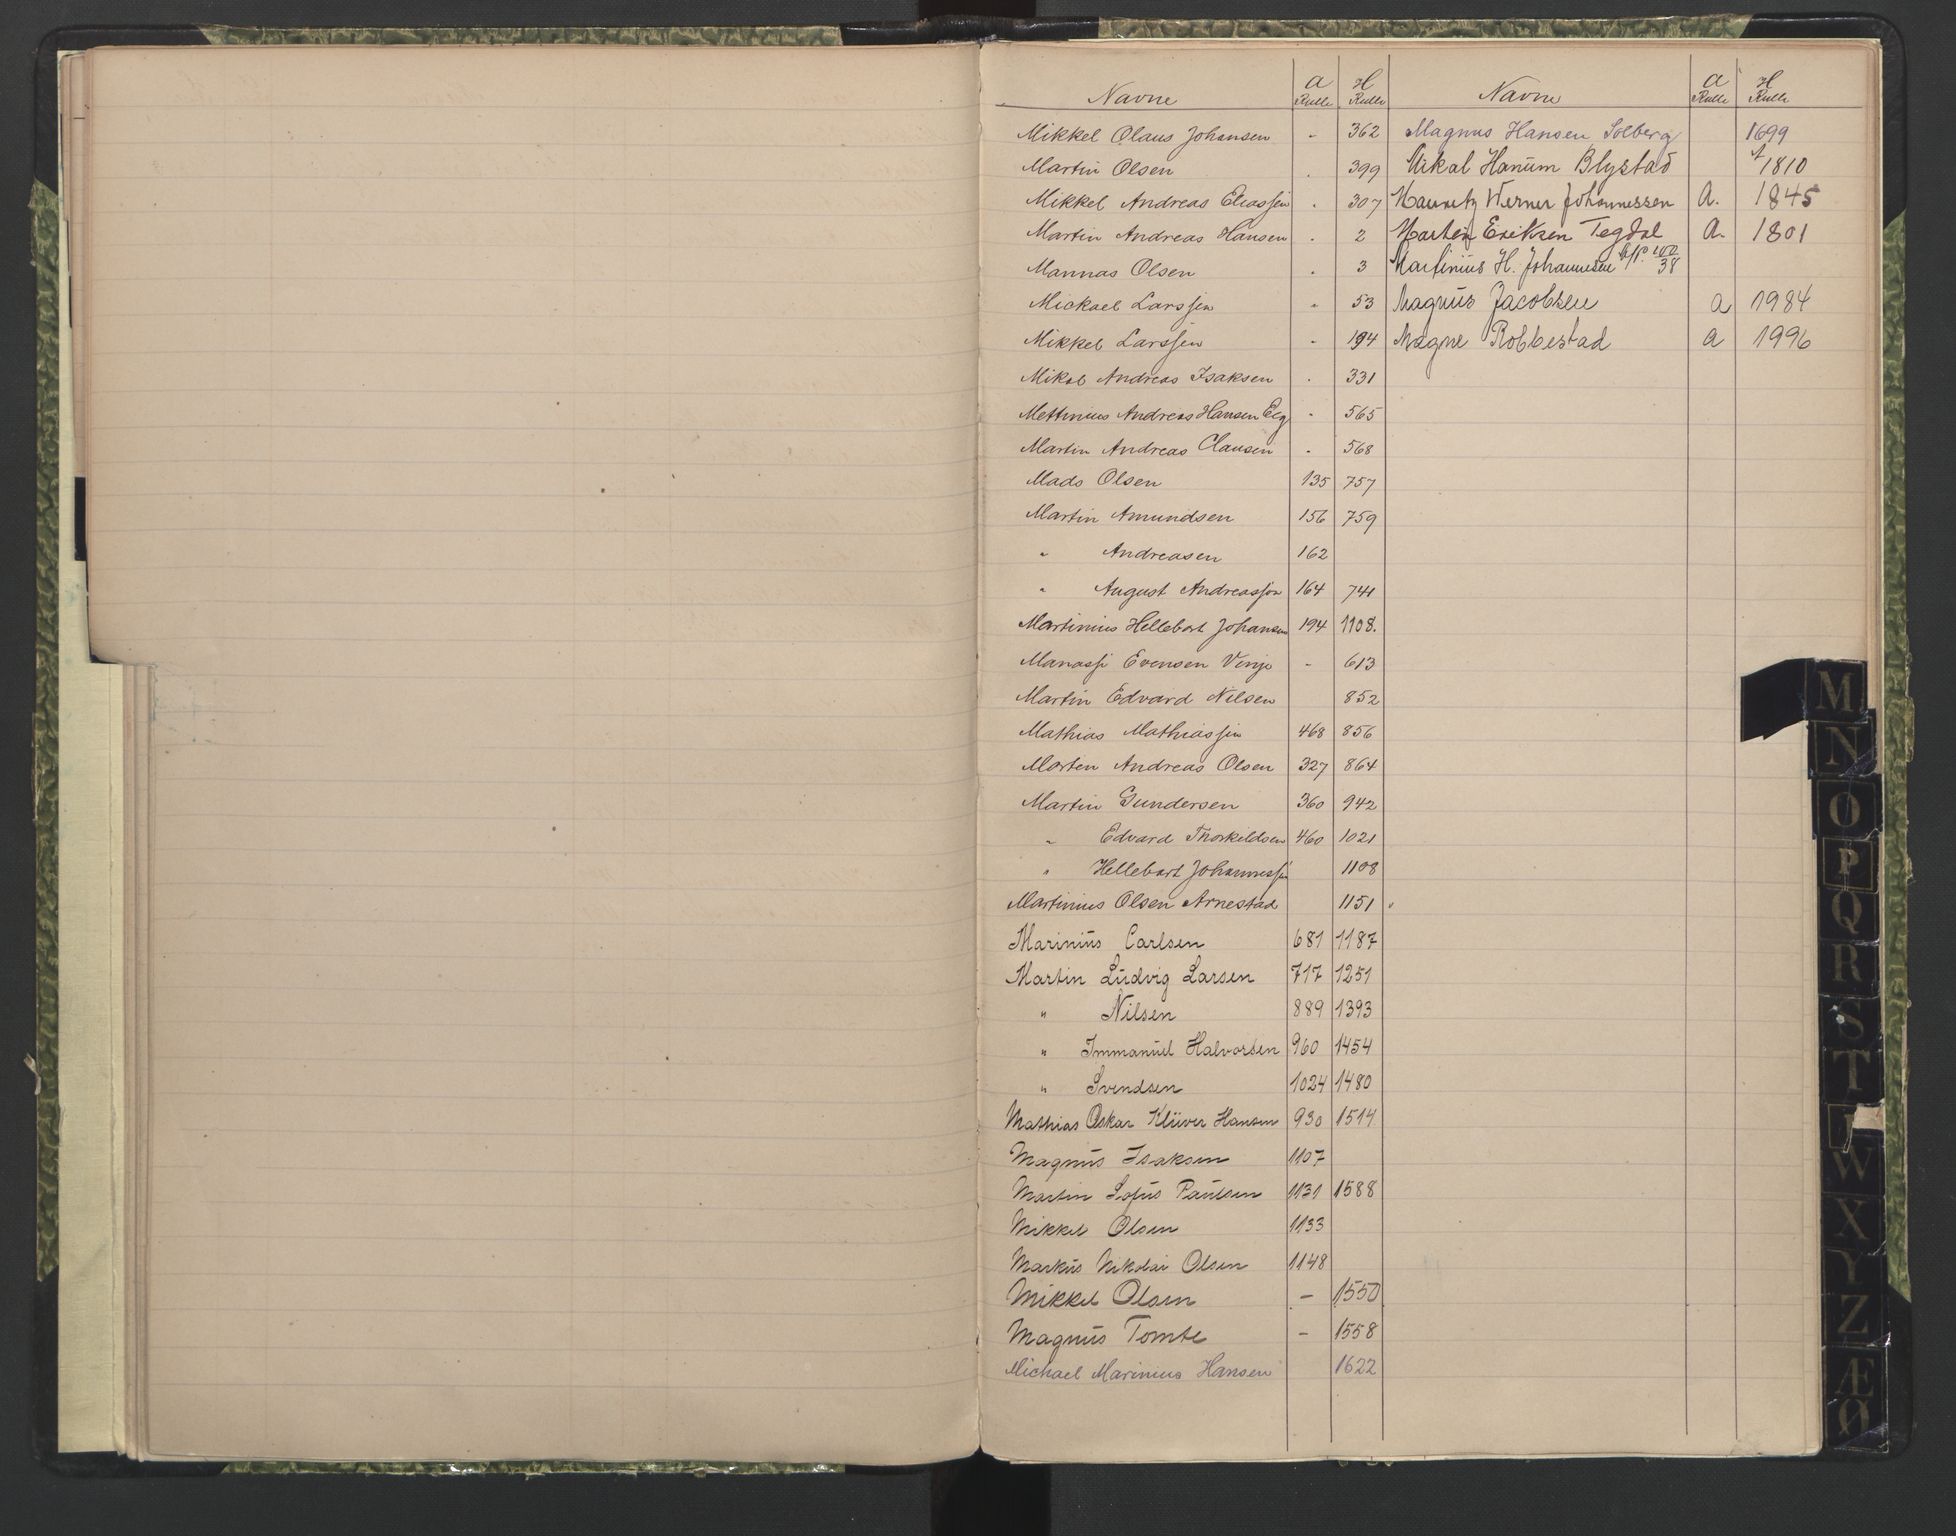 Navne a Rulle H Rulle
Mikkel Olaus Johansen - 362
Martin Olsen . 399
Mikkel Andreas Eliassen . 307
Martin Andreas Hansen . 2
Mannas Olsen . 3
Mickael Larssen - 53
Mikkel Larssen - 194
Mikal Andreas Isaksen . 331
Mettinius Andreas Hansen Eeg - 565
Martin Andreas Clausen - 568
Mads Olsen 135 757
Martin Amundsen 156 759
" Andreasen 162
" August Andreassen 164 741
Martinius Hellebart Johansen 194 1108.
Manassi Evensen Vinje - 613
Martin Edvard Nilsen 852
Mathias Mathiassen 468 856
Morten Andreas Olsen 327 864
Martin Gundersen 360 942
" Edvard Thorkildsen 460 1021
" Hellebart Johannessen 1108
Martinius Olsen Arnestad 1151
Marinius Carlsen 681 1187
Martin Ludvig Larsen 717 1251
" Nilsen 889 1393
" Immanuel Halvorsen 960 1454
" Svendsen 1024 1480
Mathias Oskar Klüver Hansen 930 1514
Magnus Isaksen 1107
Martin Sofus Paulsen 1131 1588
Mikkel Olsen 1133
Markus Nikolai Olsen 1148
Mikkel Olsen - 1550
Magnus Tomte - 1558
Michael Marinius Hansen 1622
Navne a Rulle H Rulle
Magnus Hansen Solberg 1699
Mikal Hanum Blystad 1810
Mauritz Werner Johannessen A. 1845
Morten Eriksen Tegdal A. 1801
Martinius H. Johannesen 38
Magnus Jacobsen a 1984
Magne Robbestad a 1996
M
N
O
P
Q
R
S
T
W
X
Y
Z
Æ
Ø